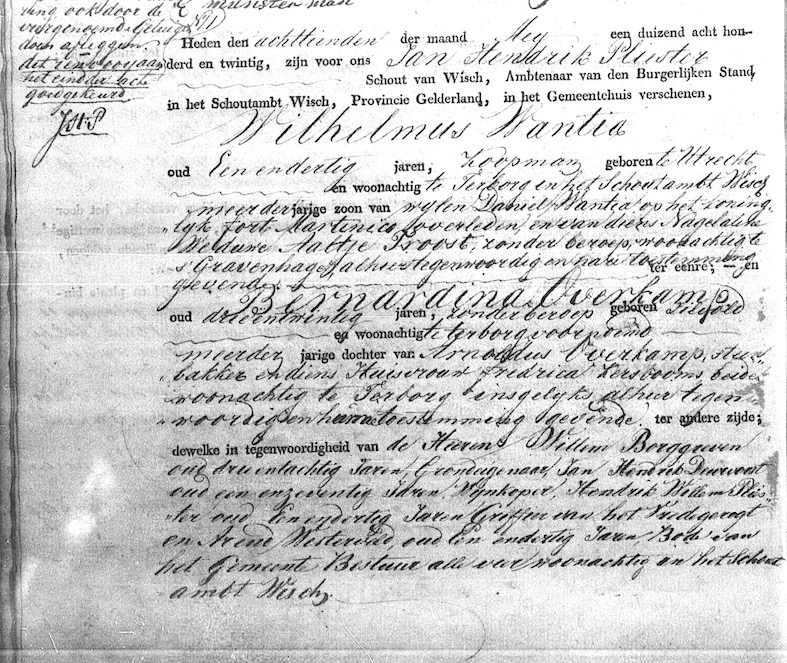 ring ook door de
voorgenoemde Getuigen
doen afleggen
dit renvooij aan
het eind der acte
goedgekeurd
JHP
Heden den achttienden der maand Mey een duizend acht hon-
derd en twintig, zijn voor ons Jan Hendrik Pliester
Schout van Wisch, Ambtenaar van den Burgerlijken Stand,
in het Schoutambt Wisch, Provincie Gelderland, in het Gemeentehuis verschenen,
Wilhelmus Wantia
oud Een en dertig jaren, Koopman geboren te Utrecht
en woonachtig te Terborg in het Schoutambt Wisch
meerder jarige zoon van wylen Daniel Wantia op het Koning-
lyk fort Martinico overleden, en van diens Nagelatene
Weduwe Aaltje Troost, zonder beroep, woonachtig te
s'Gravenhage, alhier tegenwoordig en hare toestemming
gevende ter eenre; en
Bernardina Overkamp
oud drieentwintig jaren, zonder beroep geboren
en woonachtig te terborg voornoemd
meerder jarige dochter van Arnoldus Overkamp, steen-
bakker en diens Huisvrouw Fredrica Kersbooms, beide
woonachtig te Terborg insgelyks alhier tegen-
woordig en hunne toestemming gevende ter andere zijde;
dewelke in tegenwoordigheid van de Heeren Willem Borggreven
oud drieentachtig Jaren, Grondeigenaar, Jan Hendrik
oud een en zeventig Jaren, Wynkoper, Hendrik Willem Plies-
ter oud Een en dertig Jaren Griffier van het Vredegeregt
en Arend Westerveld, oud Een en dertig Jaren Bode van
het Gemeente Bestuur alle vier woonachtig in het Schout
ambt Wisch,